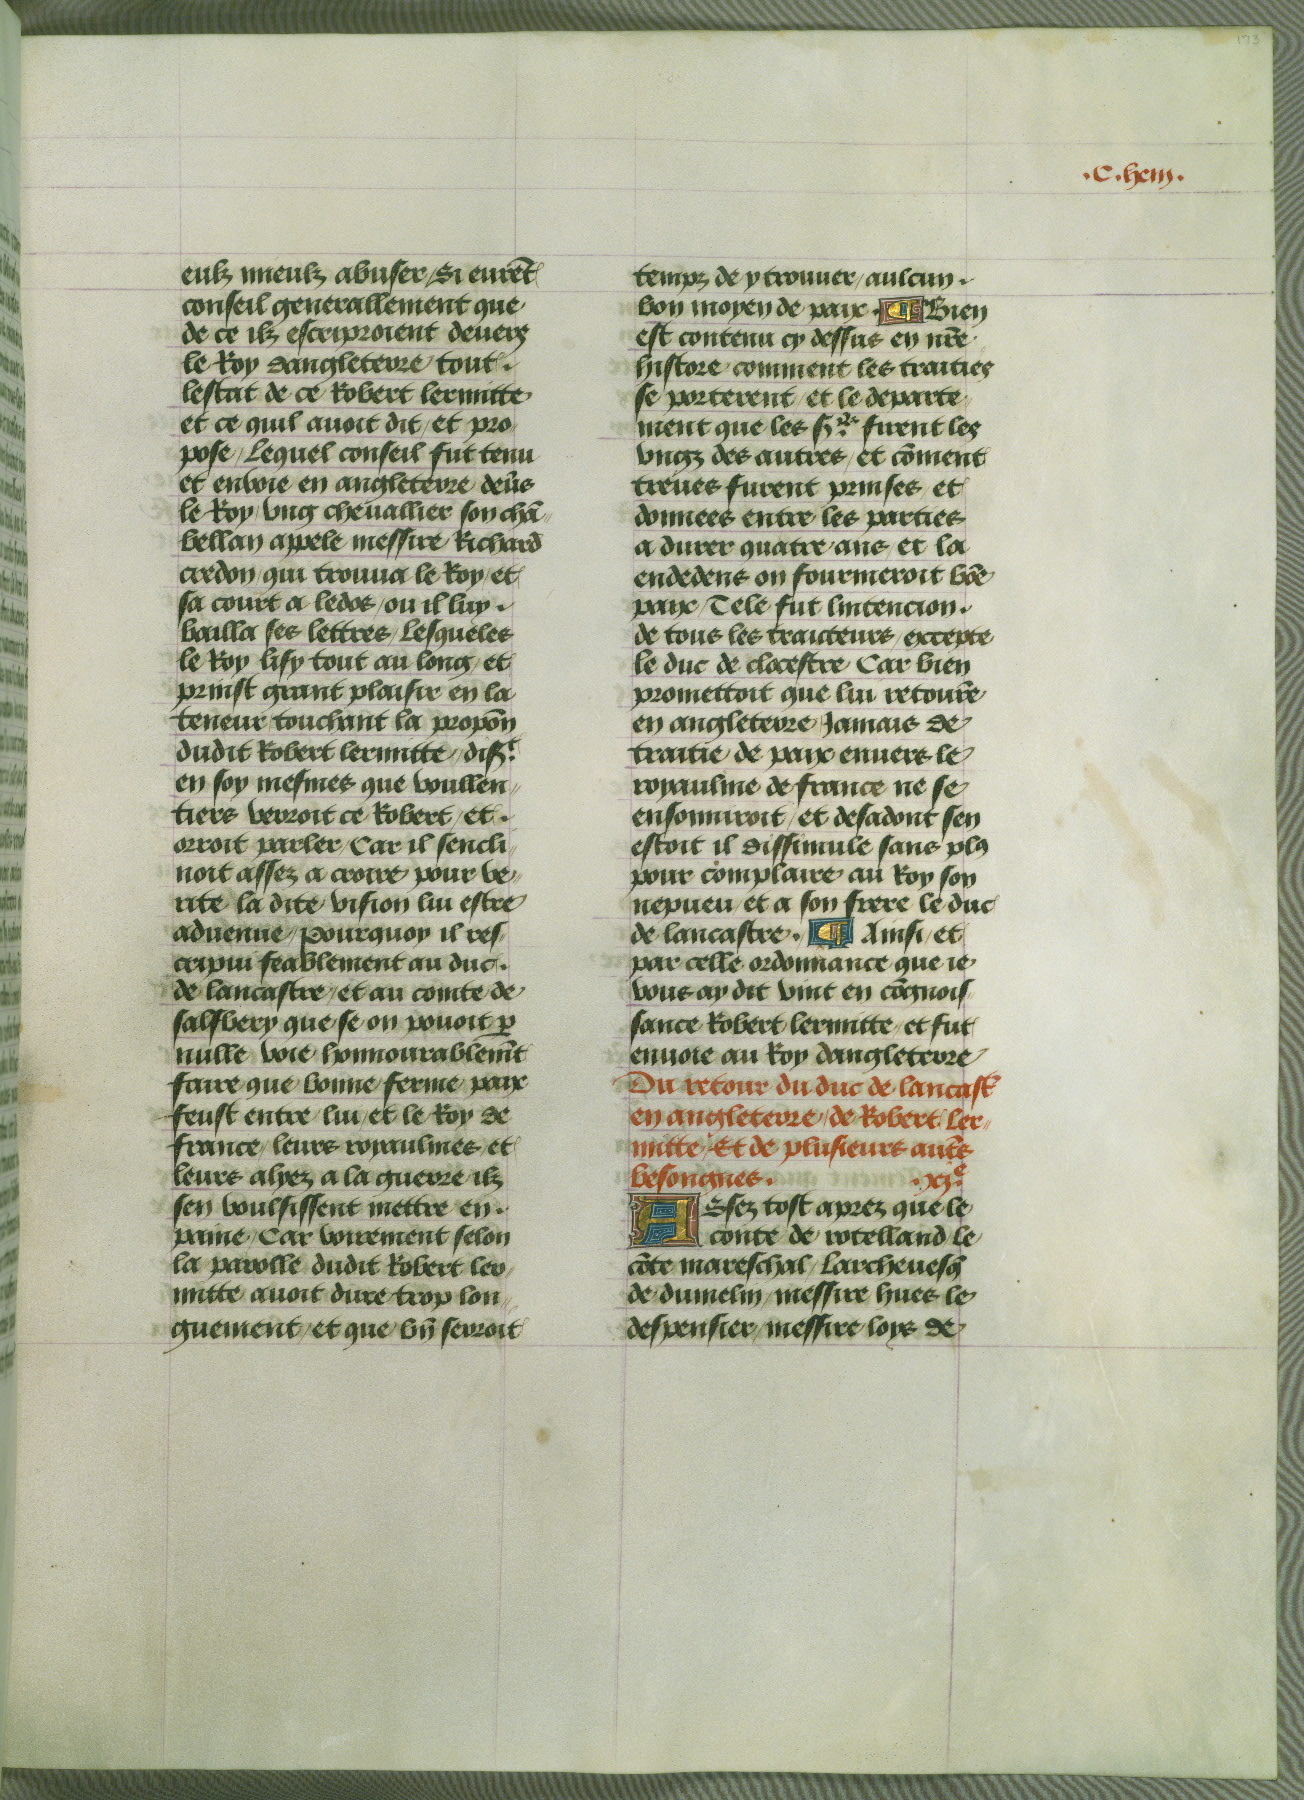 173
eulz mieulz abuser / Si eurēt
conseil generallement que
de ce ilz escriproient deuers
le Roy dangleterre tout .
lestat de ce Robert lermitte
et ce quil auoit dit / et pro
pose / Lequel conseil fut tenu
et enuoie en angleterre deūs
le Roy / vng cheuallier son chā
bellan apele messire Richard
credon / qui trouua le Roy / et
sa court a ledos / ou il luy .
bailla ses lettres / Lesqueles
le Roy lisy tout au long / et
prinst grant plaisir en la
teneur touchant la propōn
dudit Robert lermitte / disāt
en soy mesmes que voullen
tiers verroit ce Robert / et .
orroit parler / Car il sencli
noit assez a croire pour ve
rite la dite vision lui estre
aduenue / Pourquoy il res
cripui feablement au duc .
de lancastre / et au comte de
salsbery que se on pouoit ꝑ
nulle voie honnourablemt̄
faire que bonne ferme paix
feust entre lui / et le Roy de
france / leurs royaulmes et
leurs alyez a la guerre ilz
sen voulsissent mettre en .
paine / Car voirement selon
la parolle dudit Robert ler
mitte auoit dure trop lon
guement / et que bn̄ seroit
temps de y trouuer / aulcun .
bon moyen de paix . ¶ Bien
est contenu cy dessus en nr̄e
histore comment les traities
se porterent / et le departe
ment que les sgrs firent les
vngz des autres / et cōment
treues furent prinses / et
donnees entre les parties
a durer quatre ans / et la
endedens on fourmeroit bōe
paix / Tele fut lintencion .
de tous les traicteurs / excepte
le duc de clocestre / Car bien
promettoit que lui retoure
en angleterre Jamais de
traitie de paix enuers le
royaulme de france ne se
ensonniroit / et desadont sen
estoit il dissimule sans plꝰ
pour complaire au Roy son
nepueu / et a son frere le duc
de lancastre . ¶ Ainsi / et
par celle ordonnance que ie
vous ay dit vint en cōgnois
sance Robert lermitte / et fut
enuoie au Roy dangleterre
Du retour du duc de lancast̄
en angleterre / de Robert ler
mitte / Et de plusieurs autēs
besongnes . . xj.e
ASsez tost aprez que le
conte de rotelland le
cōte mareschal / Larcheuesq̄
de dumelin / messire hues le
despensier / messire loys de